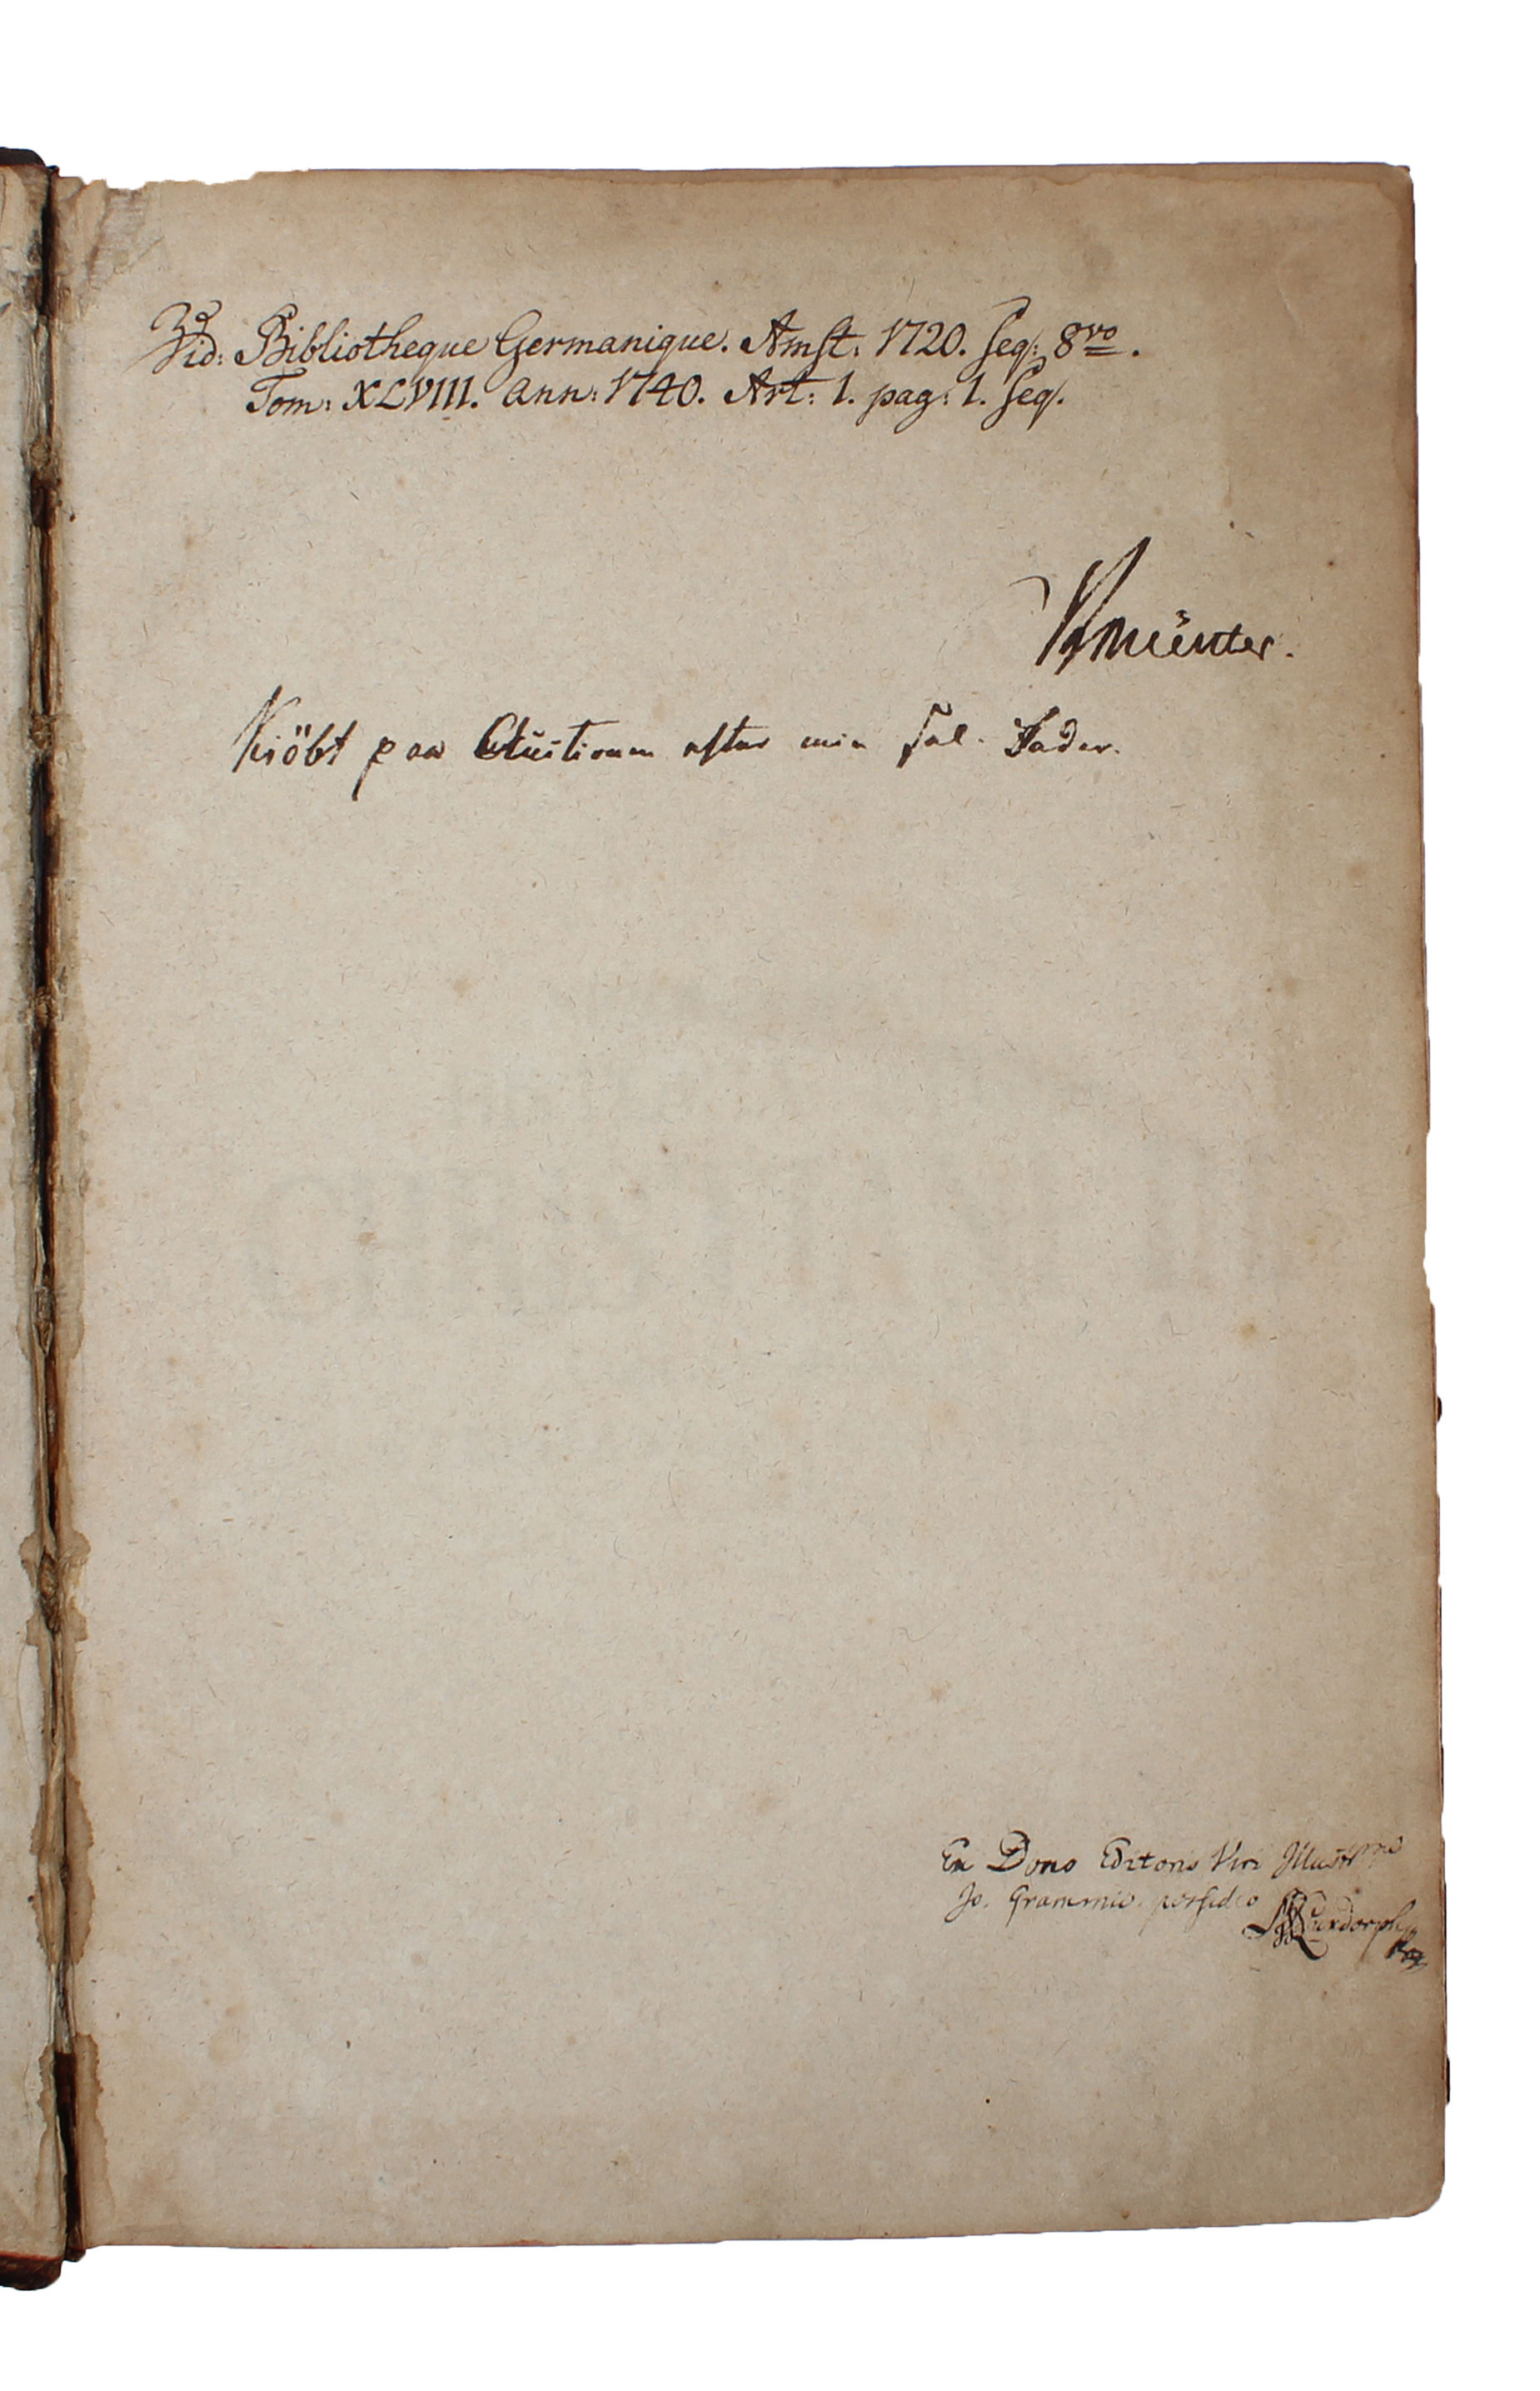 Vid: Bibliotheque Germanique. Amst: 1720. seq: 8vo.
Tom: XLVIII. Ann: 1740. Art: 1. pag: 1. seq.
Münter.
Kiöbt paa Auctionen efter min sal. Fader.
Ex Dono Editoris Viri Illustrmi
Jo. Grammii possideo
Luxdorph